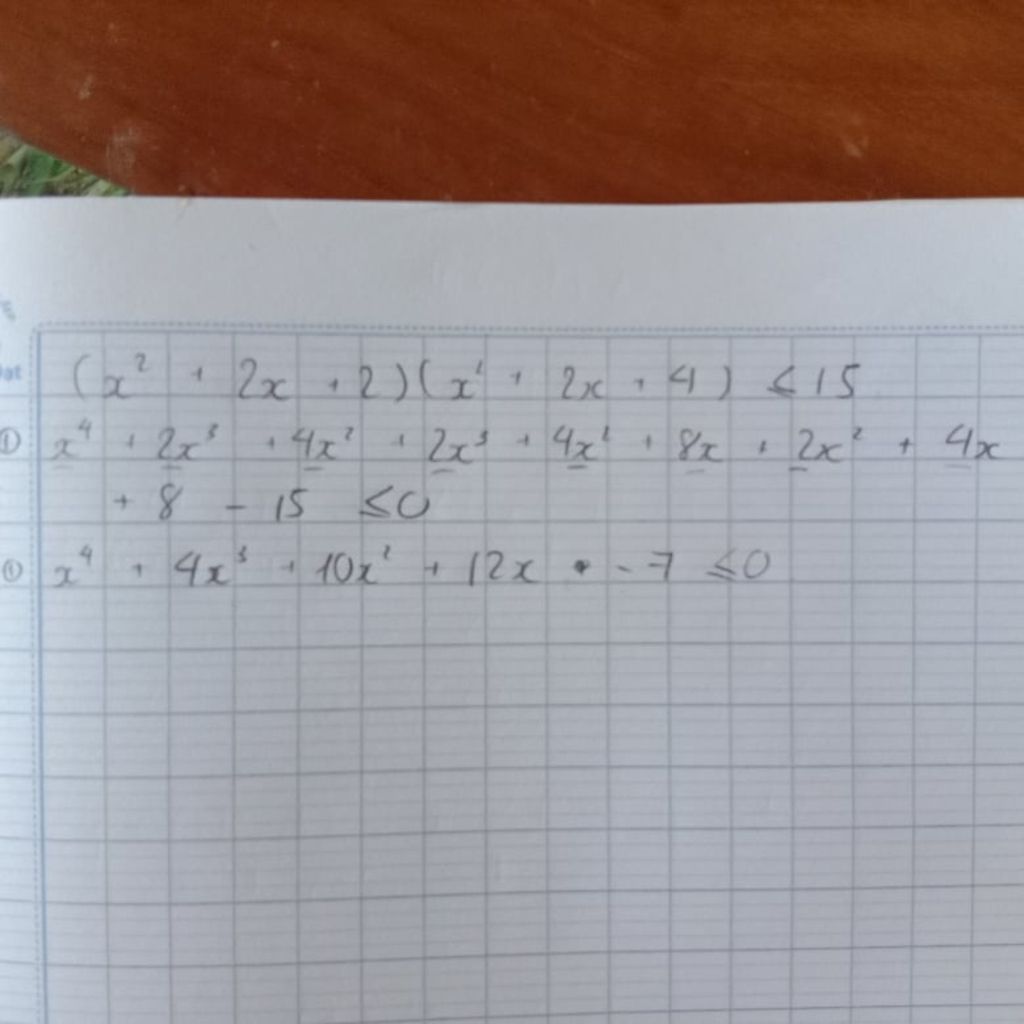 (x² + 2x + 2)(x² + 2x + 4) ≤ 15
① x⁴ + 2x³ + 4x² + 2x³ + 4x² + 8x + 2x² + 4x
+ 8 - 15 ≤ 0
① x⁴ + 4x³ + 10x² + 12x - 7 ≤ 0